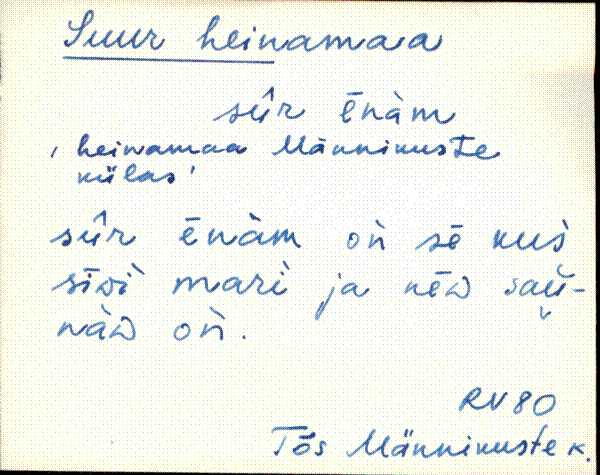 Suur heinamaa
sûr ēnàm
'heinamaa Männikuste
külas'
sûr ēnàm oǹ sē kus
sīwì mari ja nēw
nàw oǹ.
RV 80
Tõs Männikuste k.